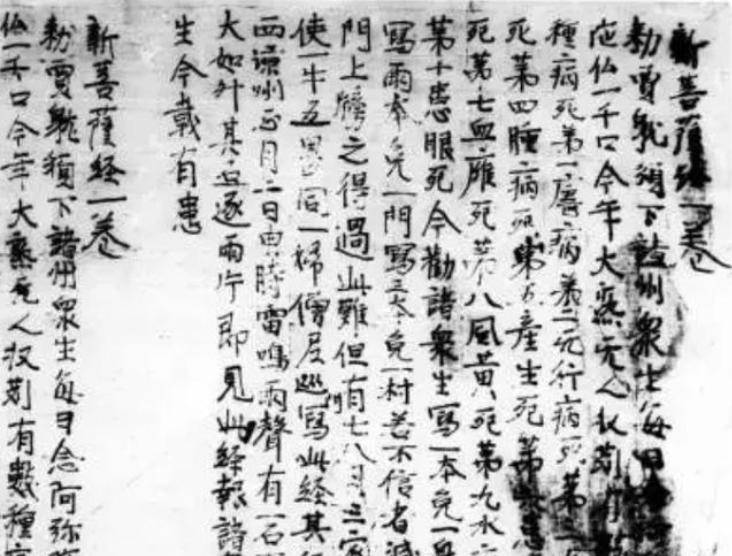 新菩薩経一巻
勑賈躭頒下諸州衆生每日念
仏一千口今年大熟无人収苅有
種病死第一瘧病第二天行病死第三
死第四腫病死第五産生死第六患
死第七血癰死第八風黄死第九水
第十患眼死今勧諸衆生写一本免一身
寫兩本免一門寫三本免一村若不信者滅
門上牓之得過此難但有七八月三家
使一牛五男同一婦僧尼巡寫此経其経
西涼州正月二日盅時雷鳴雨聲有一石
大如升其石遂兩片即見此経報諸
生今載有患
新菩薩経一巻
勑賈躭頒下諸州衆生每日念阿弥
仏一千口今年大熟无人収苅有數種